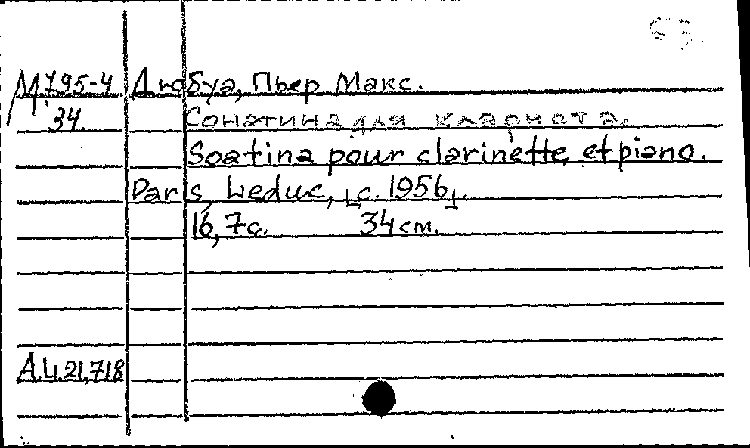 М795-4 Дюбуа, Пьер Макс.
34. Сонатина для кларнета.
Soatina pour clarinette et piano.
Paris, Leduc, [c. 1956].
16, 7с. 34 см.
А.Ц.21.718